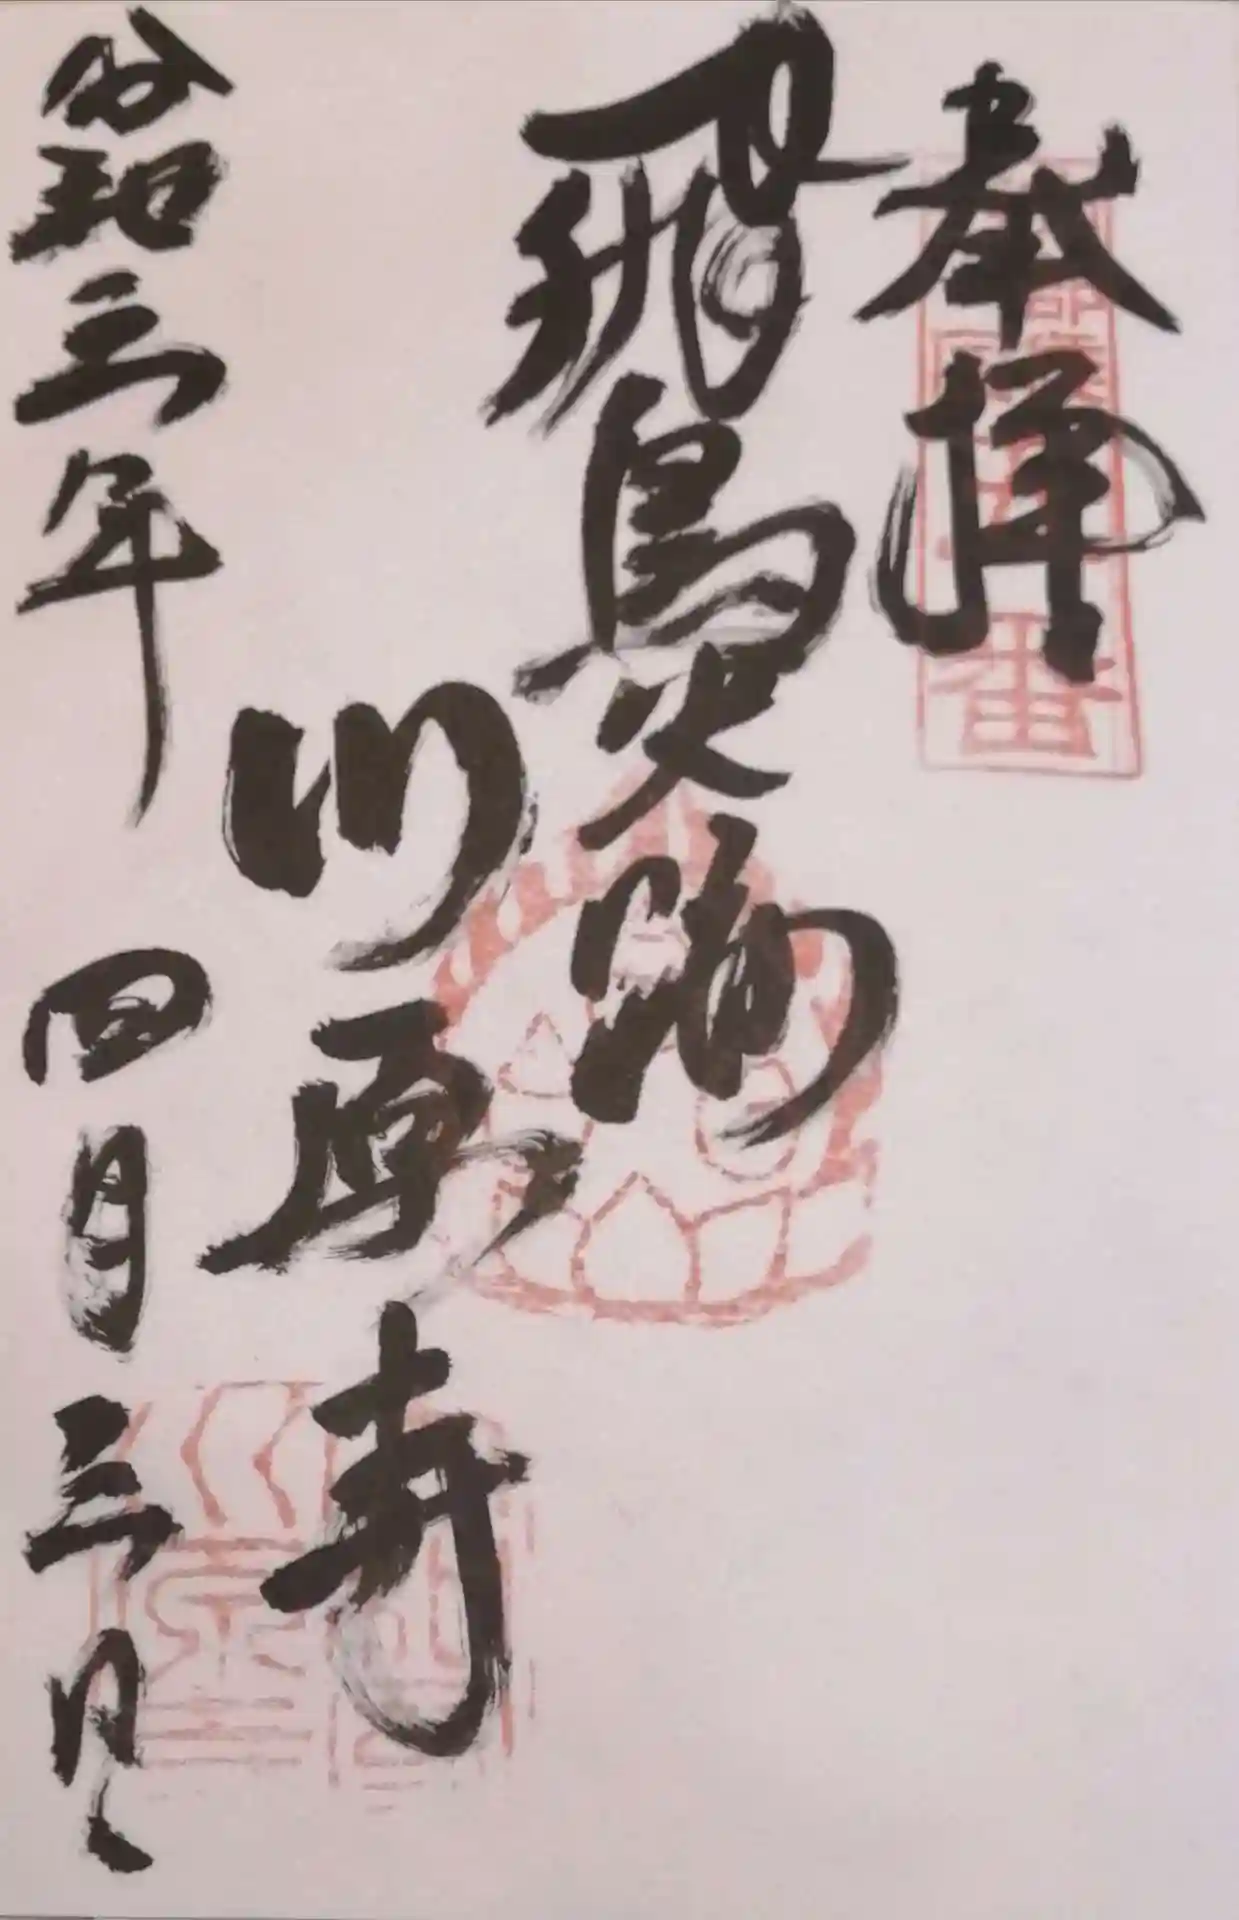 奉拝
飛鳥史跡
川原寺
令和三年 四月三日